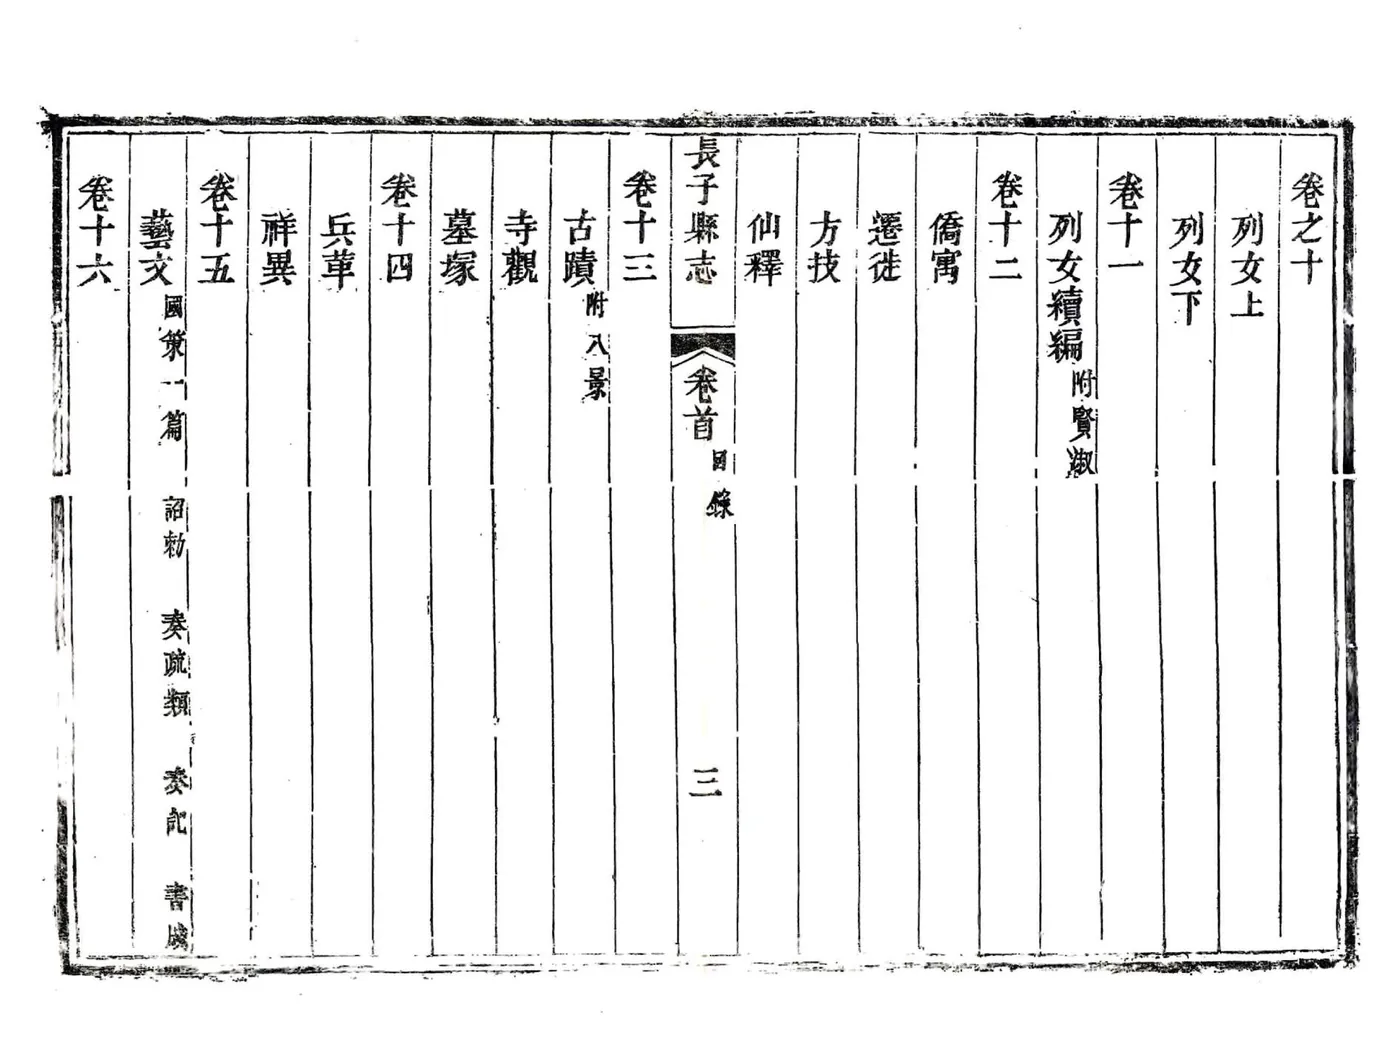 卷之十
列女上
列女下
卷十一
列女續編附賢淑
卷十二
僑寓
遷徙
方技
仙釋
長子縣志 卷首 目錄 三
卷十三
古蹟附八景
寺觀
墓塚
卷十四
兵革
祥異
卷十五
藝文國策一篇 詔勅 奏疏類 奏記 書牋
卷十六